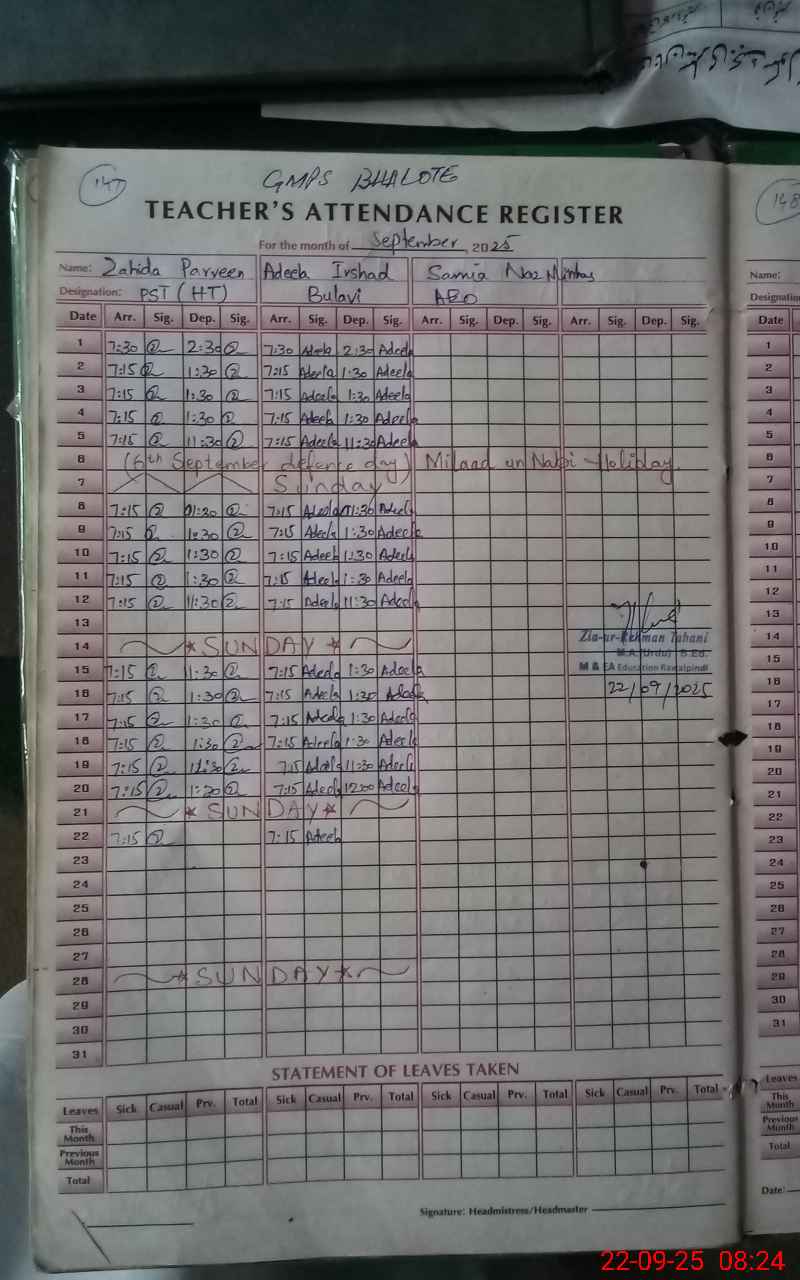 147
GMPS BHALOTE
148
TEACHER'S ATTENDANCE REGISTER
For the month of September, 2025
Name: Zahida Parveen Adeela Irshad Samia Naz Minhas
Name:
Designation: PST (HT) Bulavi AEO
Designation
Date Arr. Sig. Dep. Sig. Arr. Sig. Dep. Sig. Arr. Sig. Dep. Sig. Arr. Sig. Dep. Sig.
Date
1 7:30 2:30 7:30 Adeela 2:30 Adeela
2 7:15 1:30 7:15 Adeela 1:30 Adeela
3 7:15 1:30 7:15 Adeela 1:30 Adeela
4 7:15 1:30 7:15 Adeela 1:30 Adeela
5 7:15 11:30 7:15 Adeela 11:30 Adeela
6 (6th September defence day) Milaad un Nabi Holiday
7 Sunday
8 7:15 7:15 Adeela 1:30 Adeela
9 7:15 1:30 7:15 Adeela 1:30 Adeela
10 7:15 1:30 7:15 Adeela 1:30 Adeela
11 7:15 1:30 7:15 Adeela 1:30 Adeela
12 7:15 11:30 7:15 Adeela 11:30 Adeela
13
14 SUNDAY
Zia-ur-Rehman Tahani
M.A. (Urdu) B.Ed.
M & EA Education Rawalpindi
22/09/2025
15 7:15 1:30 7:15 Adeela 1:30 Adeela
16 7:15 1:30 7:15 Adeela 1:30 Adeela
17 7:15 1:30 7:15 Adeela 1:30 Adeela
18 7:15 1:30 7:15 Adeela 1:30 Adeela
19 7:15 11:30 7:15 Adeela 11:30 Adeela
20 7:15 1:30 7:15 Adeela 12:00 Adeela
21 SUNDAY
22 7:15 7:15 Adeela
23
24
25
26
27
28 SUNDAY
29
30
31
1
2
3
4
5
6
7
8
9
10
11
12
13
14
15
16
17
18
19
20
21
22
23
24
25
26
27
28
29
30
31
STATEMENT OF LEAVES TAKEN
Leaves Sick Casual Prv. Total Sick Casual Prv. Total Sick Casual Prv. Total Sick Casual Prv. Total
This Month
Previous Month
Total
Leaves
This Month
Previous Month
Total
Signature: Headmistress/Headmaster
Date:
22-09-25 08:24